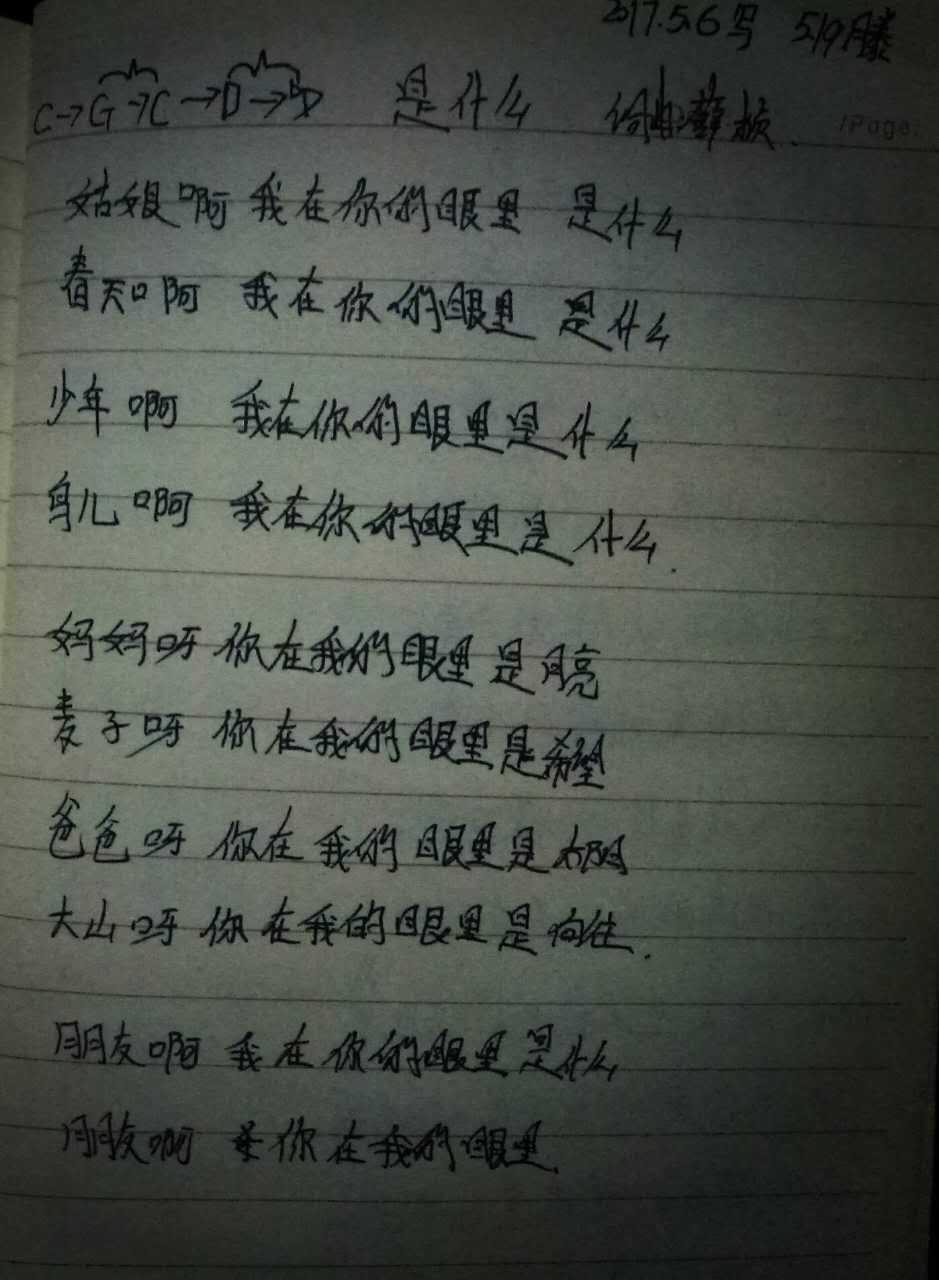 2017.5.6写 5/9腾
C→G→C→D→D 是什么 词曲:薛桢 /Page:
姑娘啊 我在你的眼里 是什么
春天啊 我在你的眼里 是什么
少年啊 我在你的眼里是什么
鸟儿啊 我在你的眼里是什么.
妈妈呀 你在我的眼里是月亮
麦子呀 你在我的眼里是希望
爸爸呀 你在我的眼里是太阳
大山呀 你在我的眼里是向往.
朋友啊 我在你的眼里是什么
朋友啊 你在我的眼里.